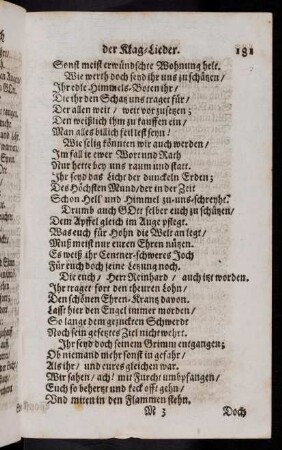 der Klag-Lieder. 181
Sonst meist erwündschte Wohnung helt.
Wie werth doch seyd ihr uns zu schützen/
Ihr edle Himmels-Boten ihr/
Die ihr den Schatz uns traget für/
Der allen weit/ weit vorzusetzen;
Den weißlich ihm zu kauffen ein/
Man alles billich feil lest seyn!
Wie selig könnten wir auch werden/
Im fall je ewer Wort und Rath
Nur hette bey uns raum und statt.
Ihr seyd das Licht der dunckeln Erden;
Des Höchsten Mund/ der in der Zeit
Schon Hell und Himmel zu-uns-schreyht.
Drumb auch GOtt selber euch zu schützen/
Dem Apffel gleich im Auge pflegt.
Was euch für Hohn die Welt anlegt/
Muß meist nur euren Ehren nützen.
Es weiß ihr Centner-schweres Joch
Für euch doch seine Letzung noch.
Die euch/ Herr Reinhard/ auch itzt worden.
Ihr traget fort den theuren Lohn/
Den schönen Ehren-Krantz davon.
Lasst hier den Engel immer morden/
So lange dem gezuckten Schwerdt
Noch sein gesetztes Ziel nicht wehrt.
Ihr seyd doch seinem Grimm entgangen;
Ob niemand mehr sonst in gefahr/
Als ihr/ und eures gleichen war.
Wir sahen/ ach! mit Furcht umbpfangen/
Euch so behertzt und keck offt gehn/
Und mitten in den Flammen stehn.
M 3 Doch